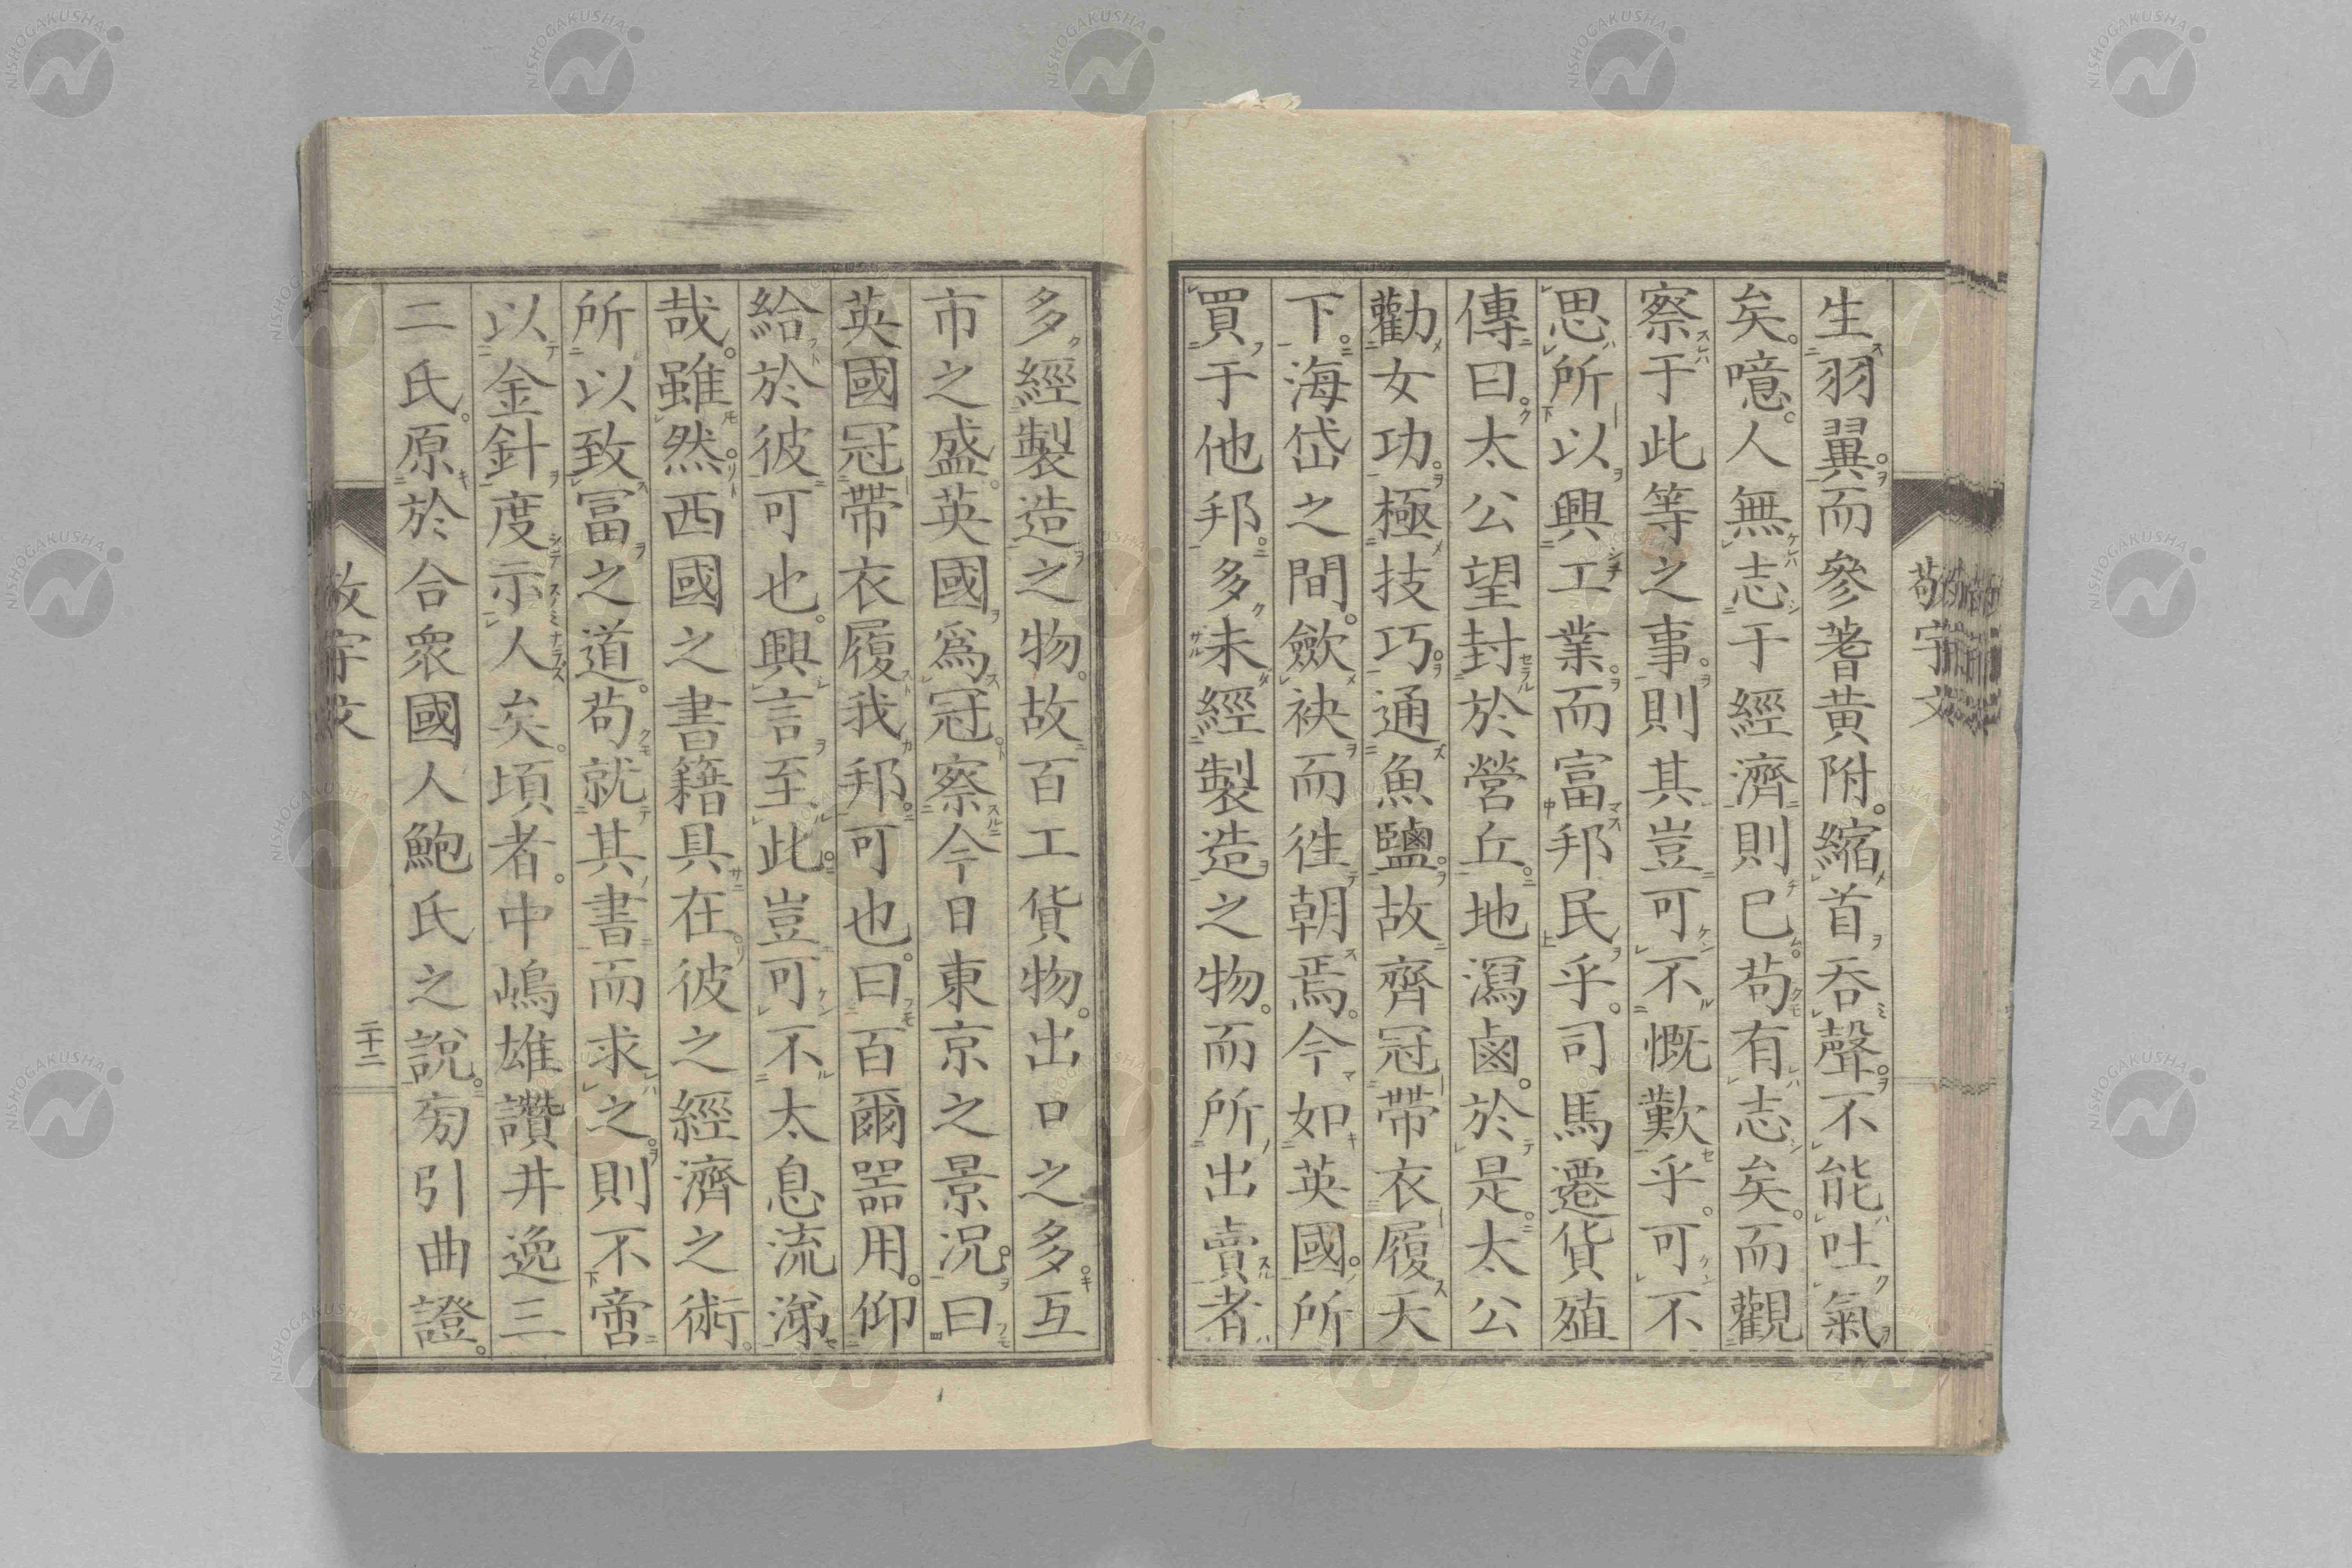 生羽翼。而參蓍黃附。縮首吞聲。不能吐氣
矣。噫。人無志于經濟則已。苟有志矣。而觀
察于此等之事。則其豈可不慨歎乎。可不
思所以興工業。而富邦民乎。司馬遷貨殖
傳曰。太公望封於營丘。地瀉鹵。於是。太公
勸女功。極技巧。通魚鹽。故齊冠帶衣履天
下。海岱之間。歛袂而徃朝焉。今如英國。所
買于他邦。多未經製造之物。而所出賣者
多經製造之物。故百工貨物。出口之多。互
市之盛。英國爲冠。察今日東京之景況。曰
英國冠帶衣履我邦。可也。曰百爾器用。仰
給於彼可也。興言至此。豈可不太息流涕
哉。雖然。西國之書籍具在。彼之經濟之術。
所以致富之道。苟就其書而求之。則不啻
以金針度示人矣。頃者。中嶋雄讚井逸三
二氏。原於合衆國人鮑氏之說。旁引曲證。
敬宇文
敬宇文
二十二
NISHOGAKUSHA